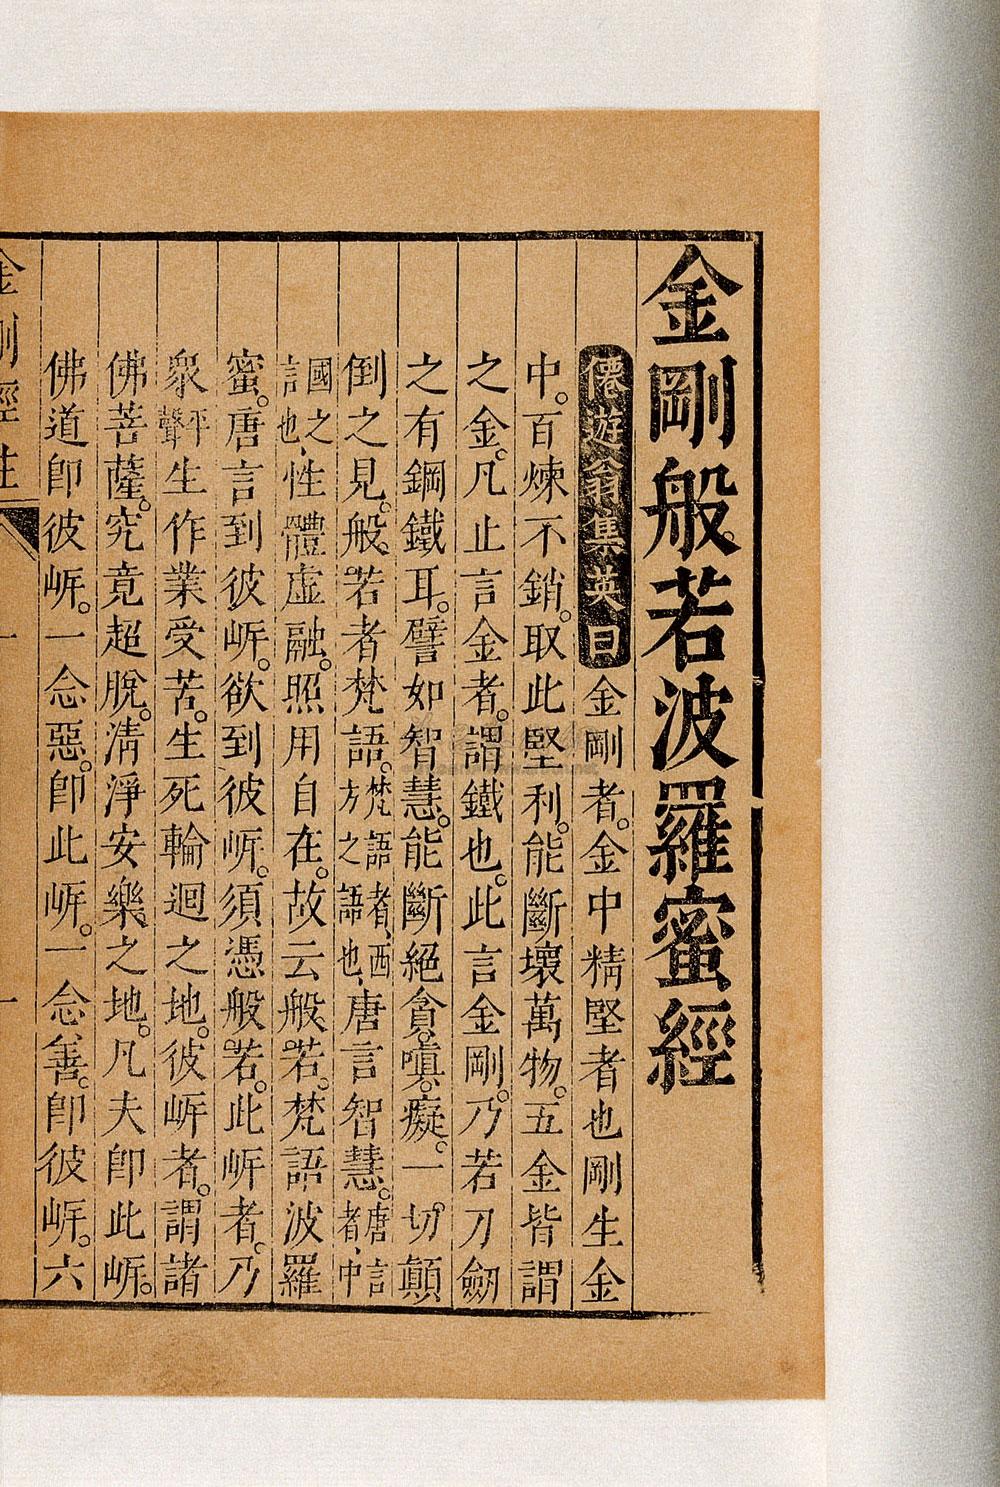 金剛般若波羅蜜經
僊遊翁集英曰金剛者。金中精堅者也剛生金
中。百煉不銷。取此堅利。能斷壞萬物。五金皆謂
之金。凡止言金者。謂鐵也。此言金剛。乃若刀劒
之有鋼鐵耳。譬如智慧。能斷絕貪。嗔。癡。一切顛
倒之見。般若者梵語。梵語者、西方之語也、唐言智慧。唐言者、中
國之言也、性體虛融。照用自在。故云般若。梵語波羅
蜜。唐言到彼岸。欲到彼岸。須憑般若。此岸者。乃
衆平聲生作業受苦。生死輪迴之地。彼岸者。謂諸
佛菩薩。究竟超脫。清淨安樂之地。凡夫即此岸。
佛道即彼岸。一念惡。即此岸。一念善。即彼岸。六
金剛經註
一